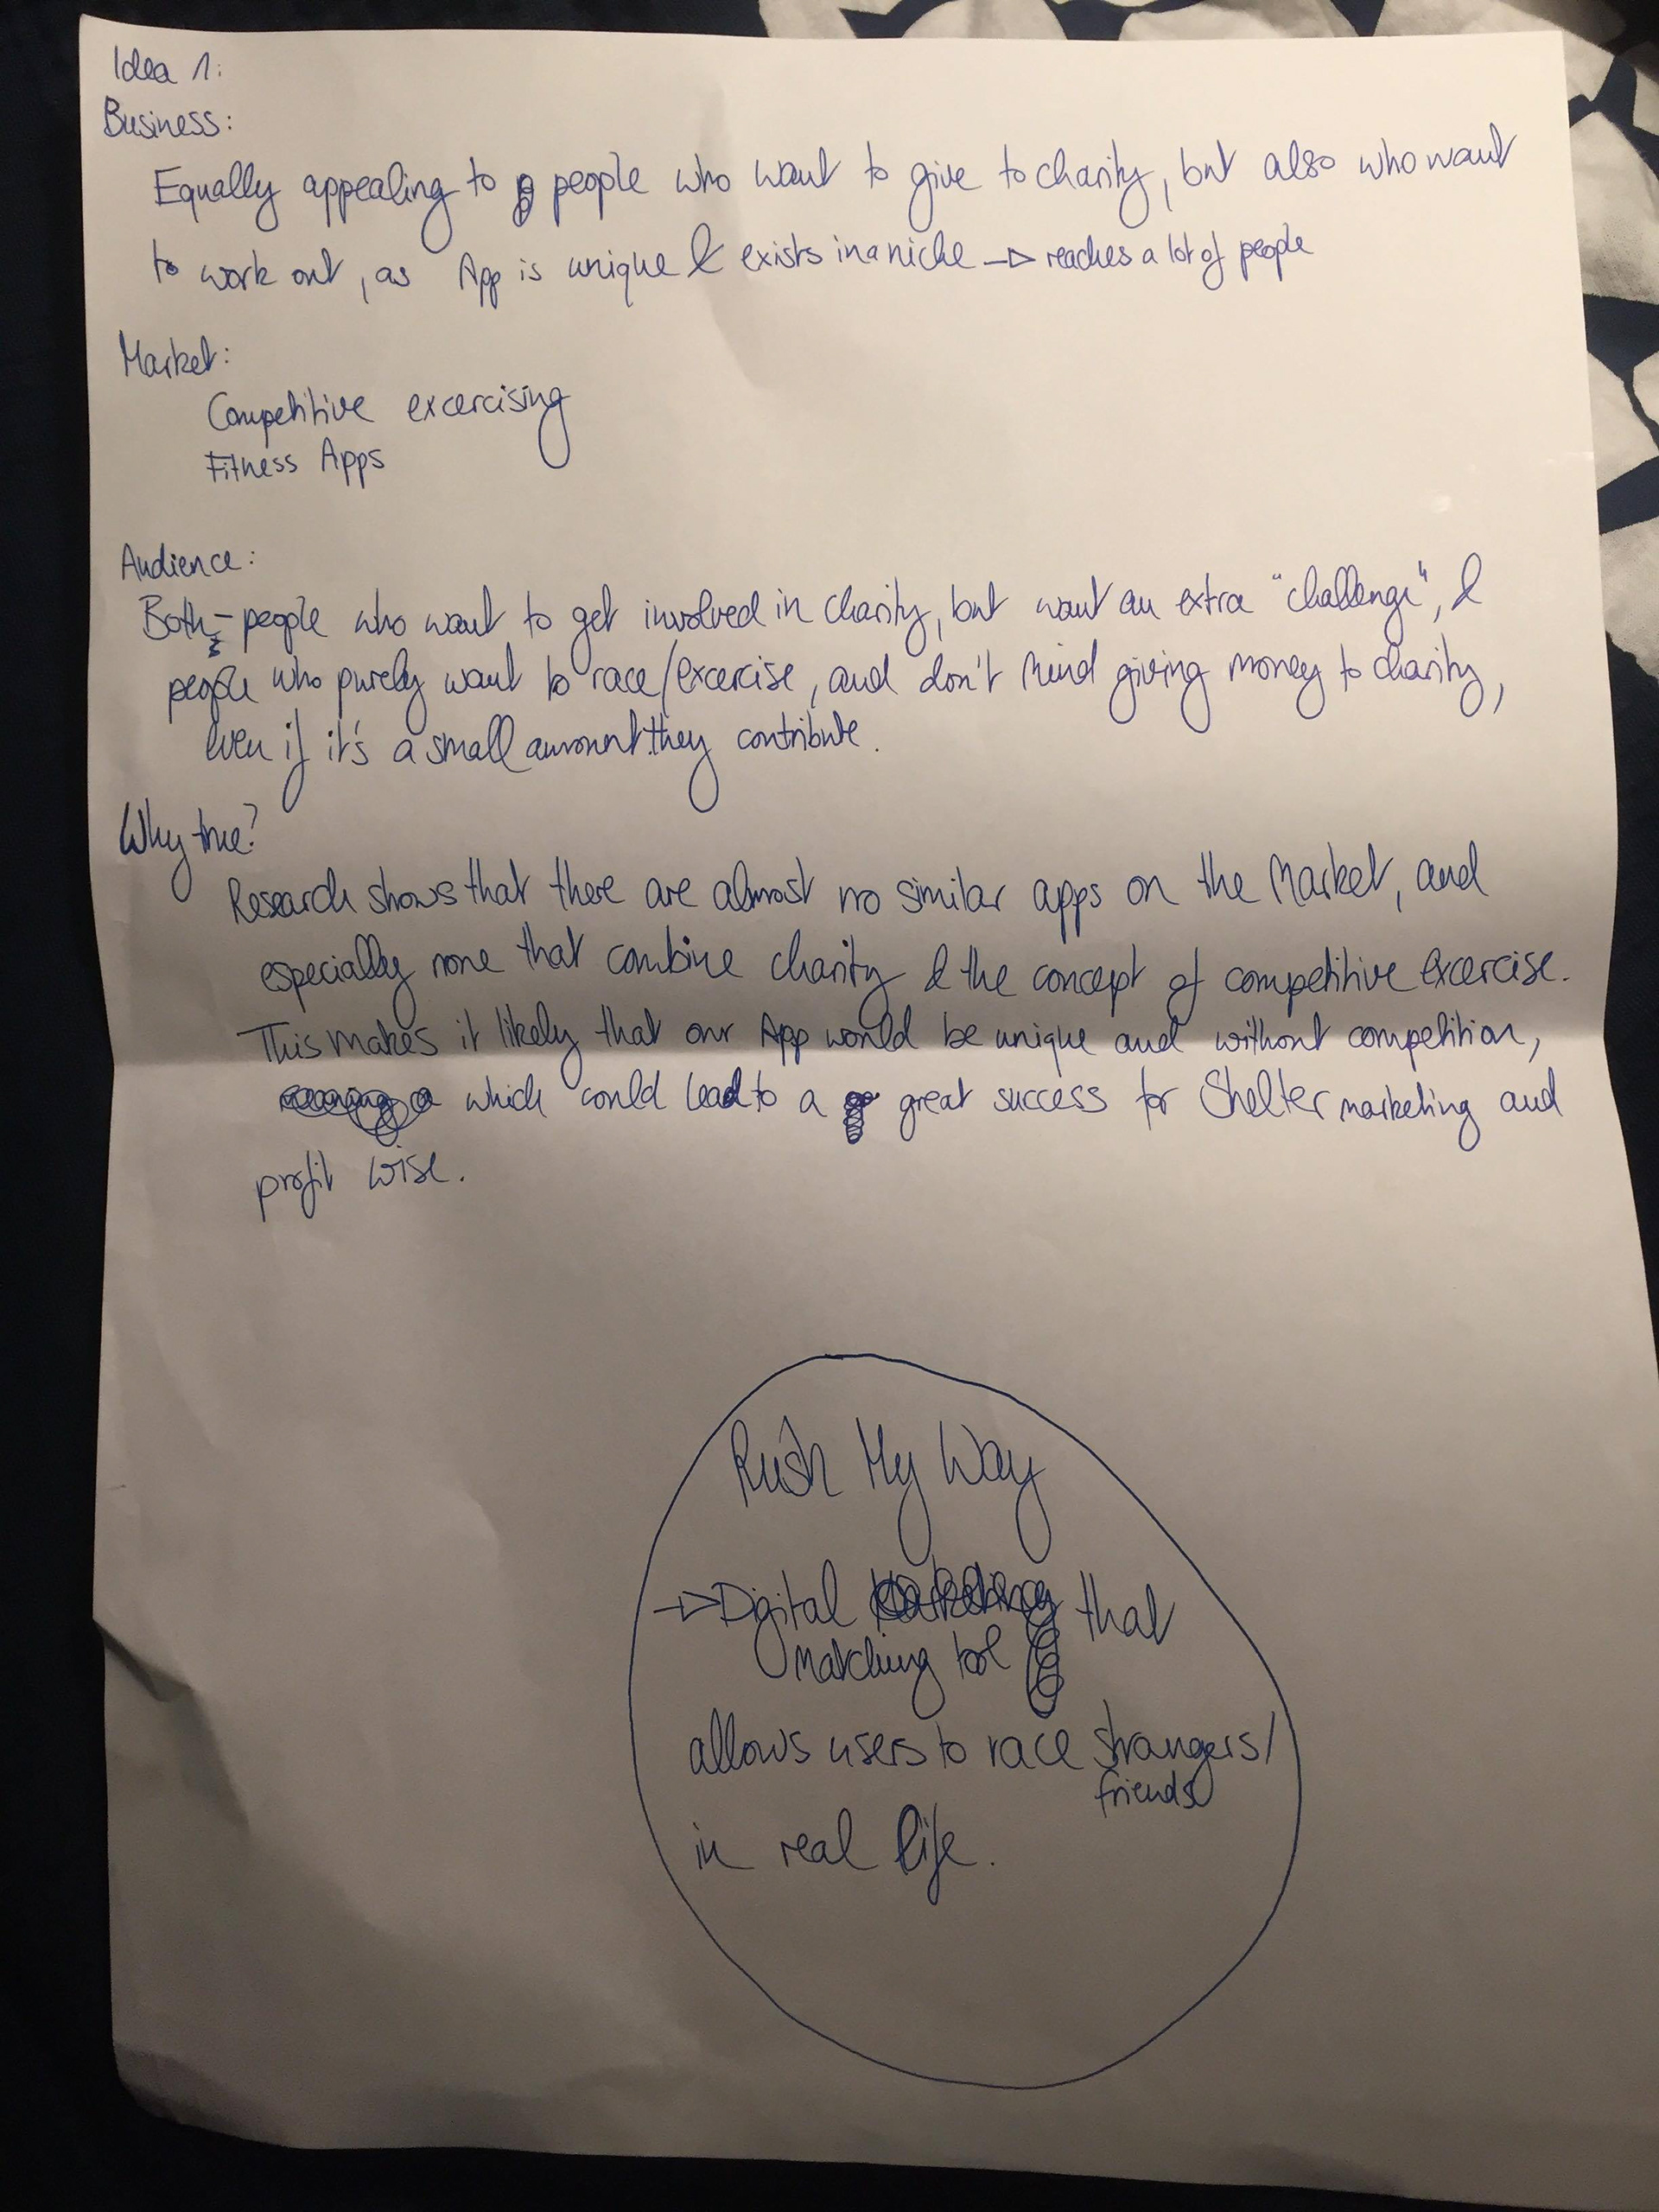 Idea 1:
Business:
Equally appealing to people who want to give to charity, but also who want
to work out, as App is unique & exists in a niche → reaches a lot of people
Market:
Competitive excercising
Fitness Apps
Audience:
Both - people who want to get involved in charity, but want an extra "challenge", &
people who purely want to race/excercise, and don't mind giving money to charity,
even if it's a small amount they contribute.
Why true?
Research shows that there are almost no similar apps on the Market, and
especially none that combine charity & the concept of competitive excercise.
This makes it likely that our App would be unique and without competition,
which could lead to a great success for Shelter marketing and
profit wise.
Rush My Way
→ Digital that
Matching tool
allows users to race strangers/
friends
in real life.